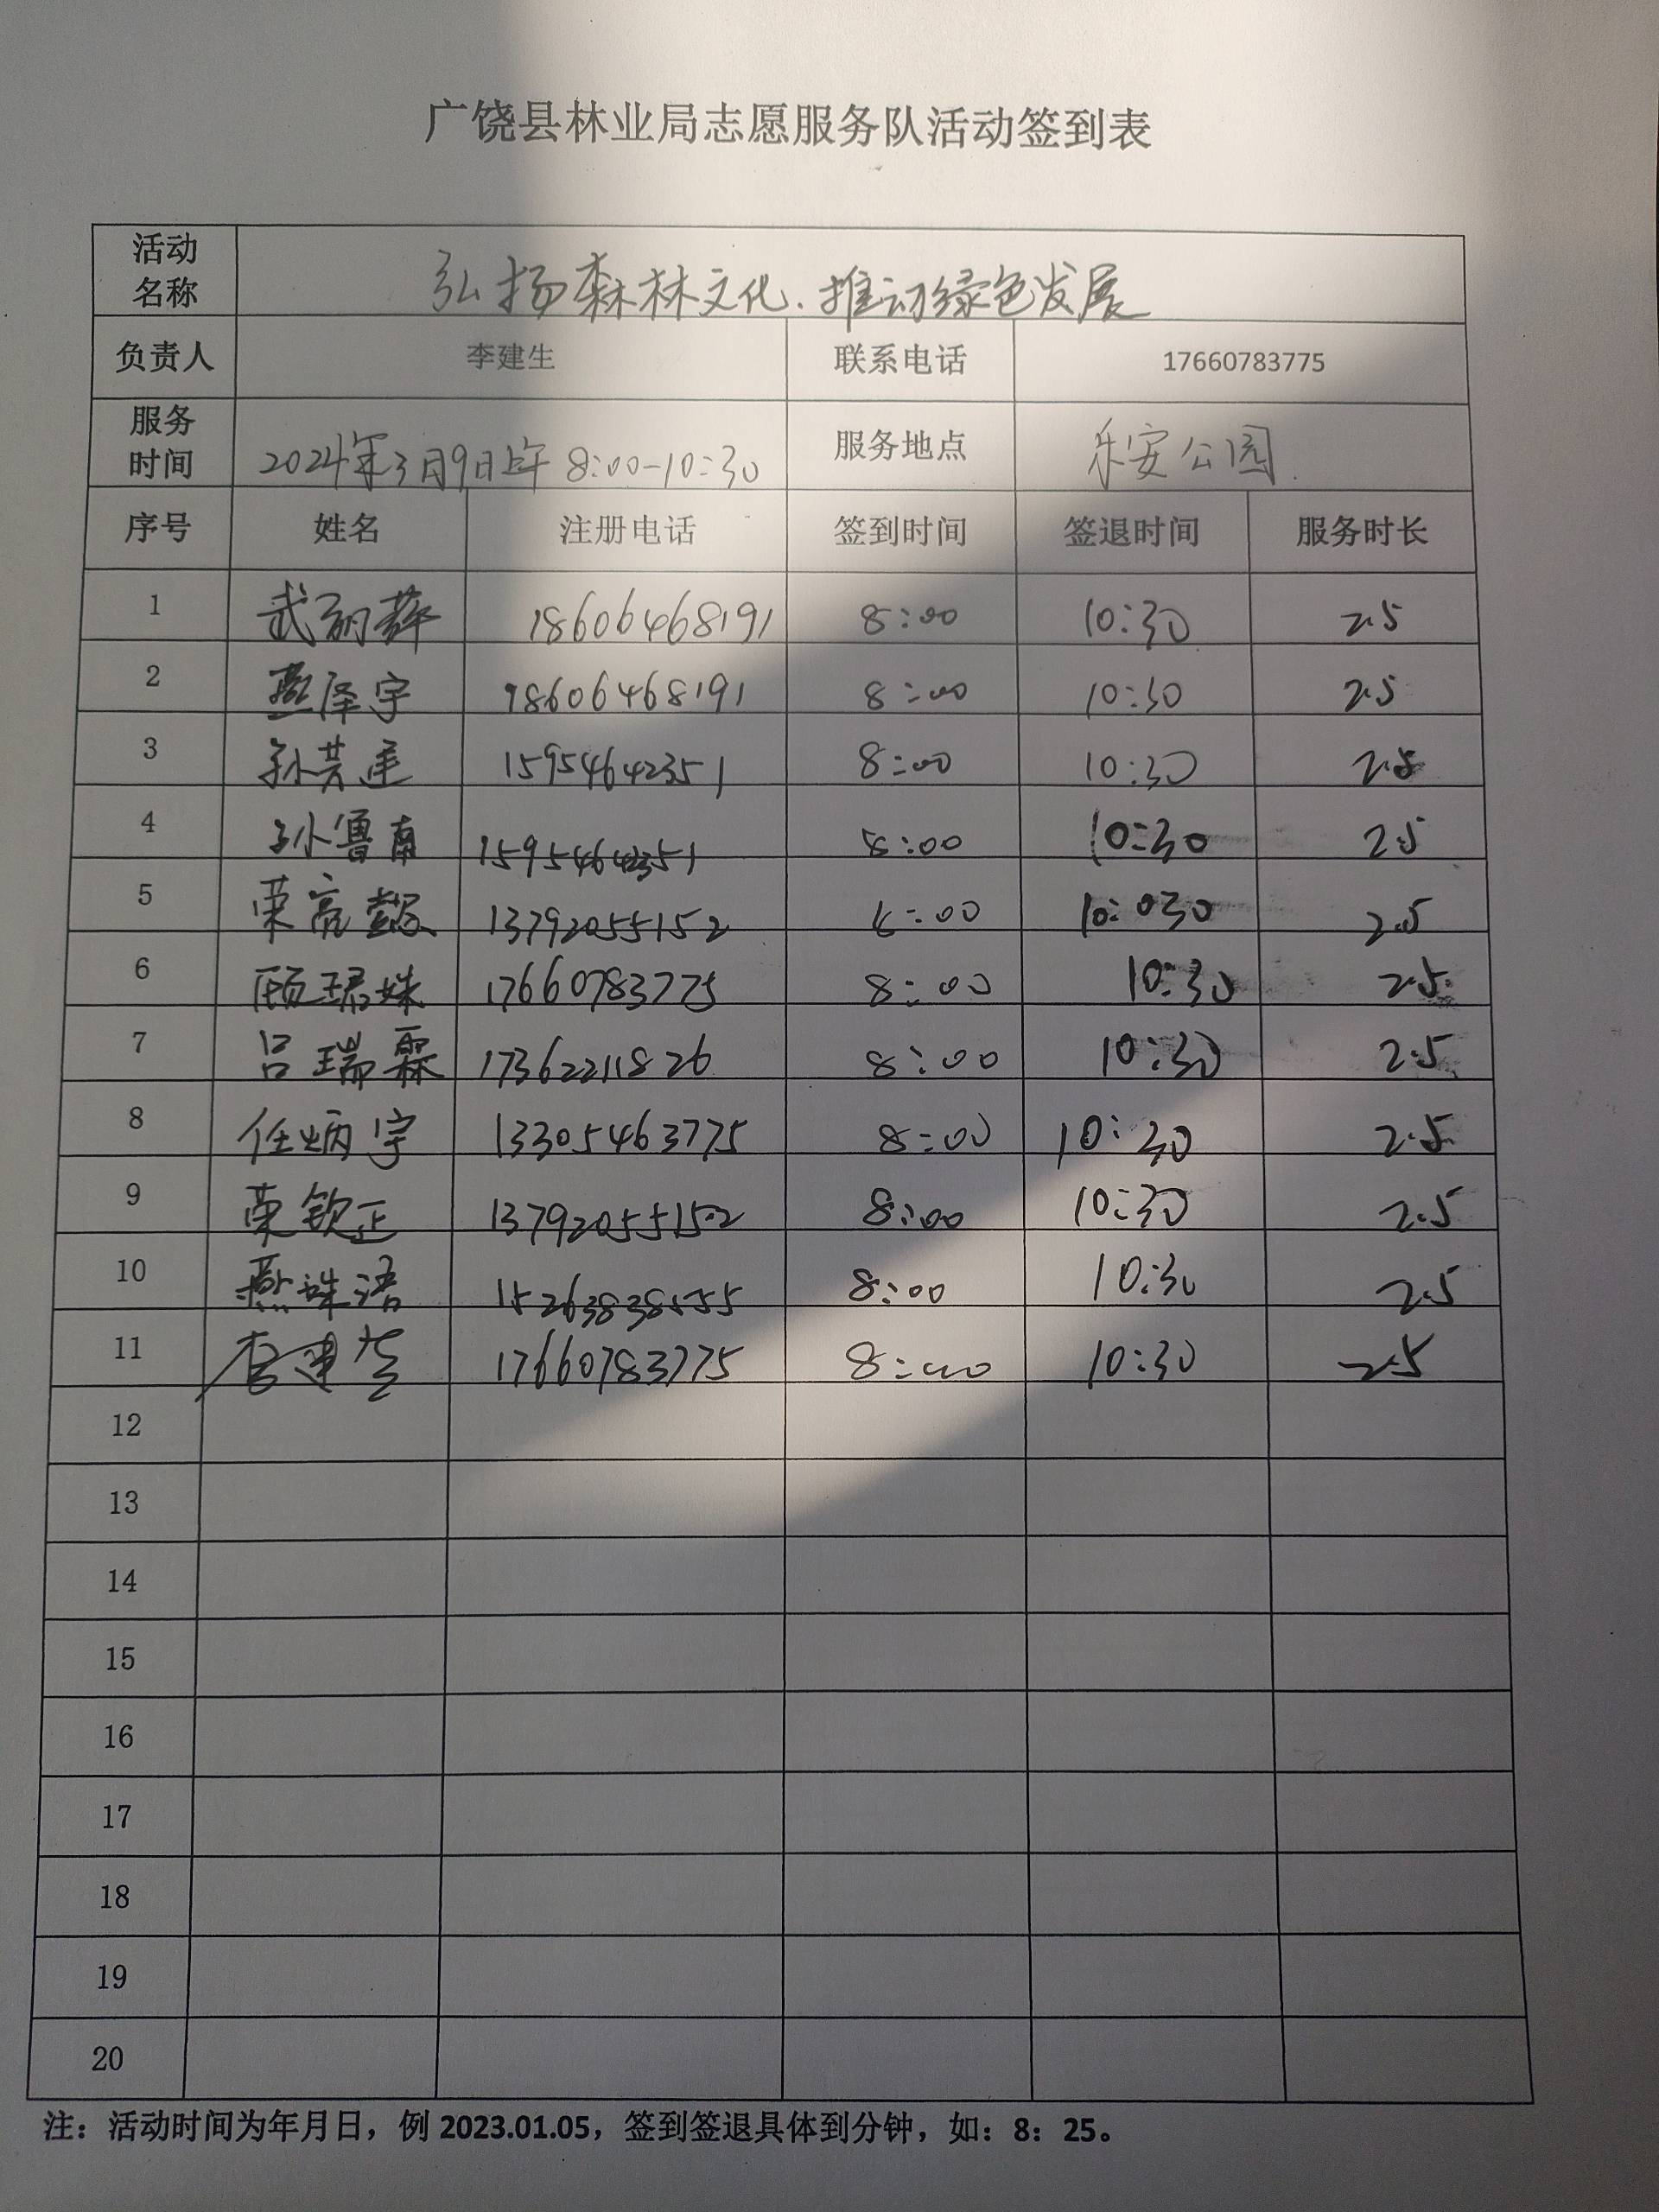 广饶县林业局志愿服务队活动签到表
活动名称 弘扬森林文化.推动绿色发展
负责人 李建生 联系电话 17660783775
服务时间 2024年3月9日上午8:00-10:30 服务地点 乐安公园.
序号 姓名 注册电话 签到时间 签退时间 服务时长
1 武丽萍 18606468191 8:00 10:30 2.5
2 燕泽宇 18606468191 8:00 10:30 2.5
3 孙芳 15954642351 8:00 10:30 2.5
4 孙鲁南 15954642351 8:00 10:30 2.5
5 荣亮懿 13792055152 8:00 10:030 2.5
6 顾珺姝 17660783775 8:00 10:30 2.5
7 吕瑞霖 17362211826 8:00 10:30 2.5
8 任炳宇 13305463775 8:00 10:30 2.5
9 荣钦正 13792055152 8:00 10:30 2.5
10 燕姝语 15263838555 8:00 10:30 2.5
11 李建生 17660783775 8:00 10:30 2.5
12
13
14
15
16
17
18
19
20
注：活动时间为年月日，例 2023.01.05，签到签退具体到分钟，如：8：25。